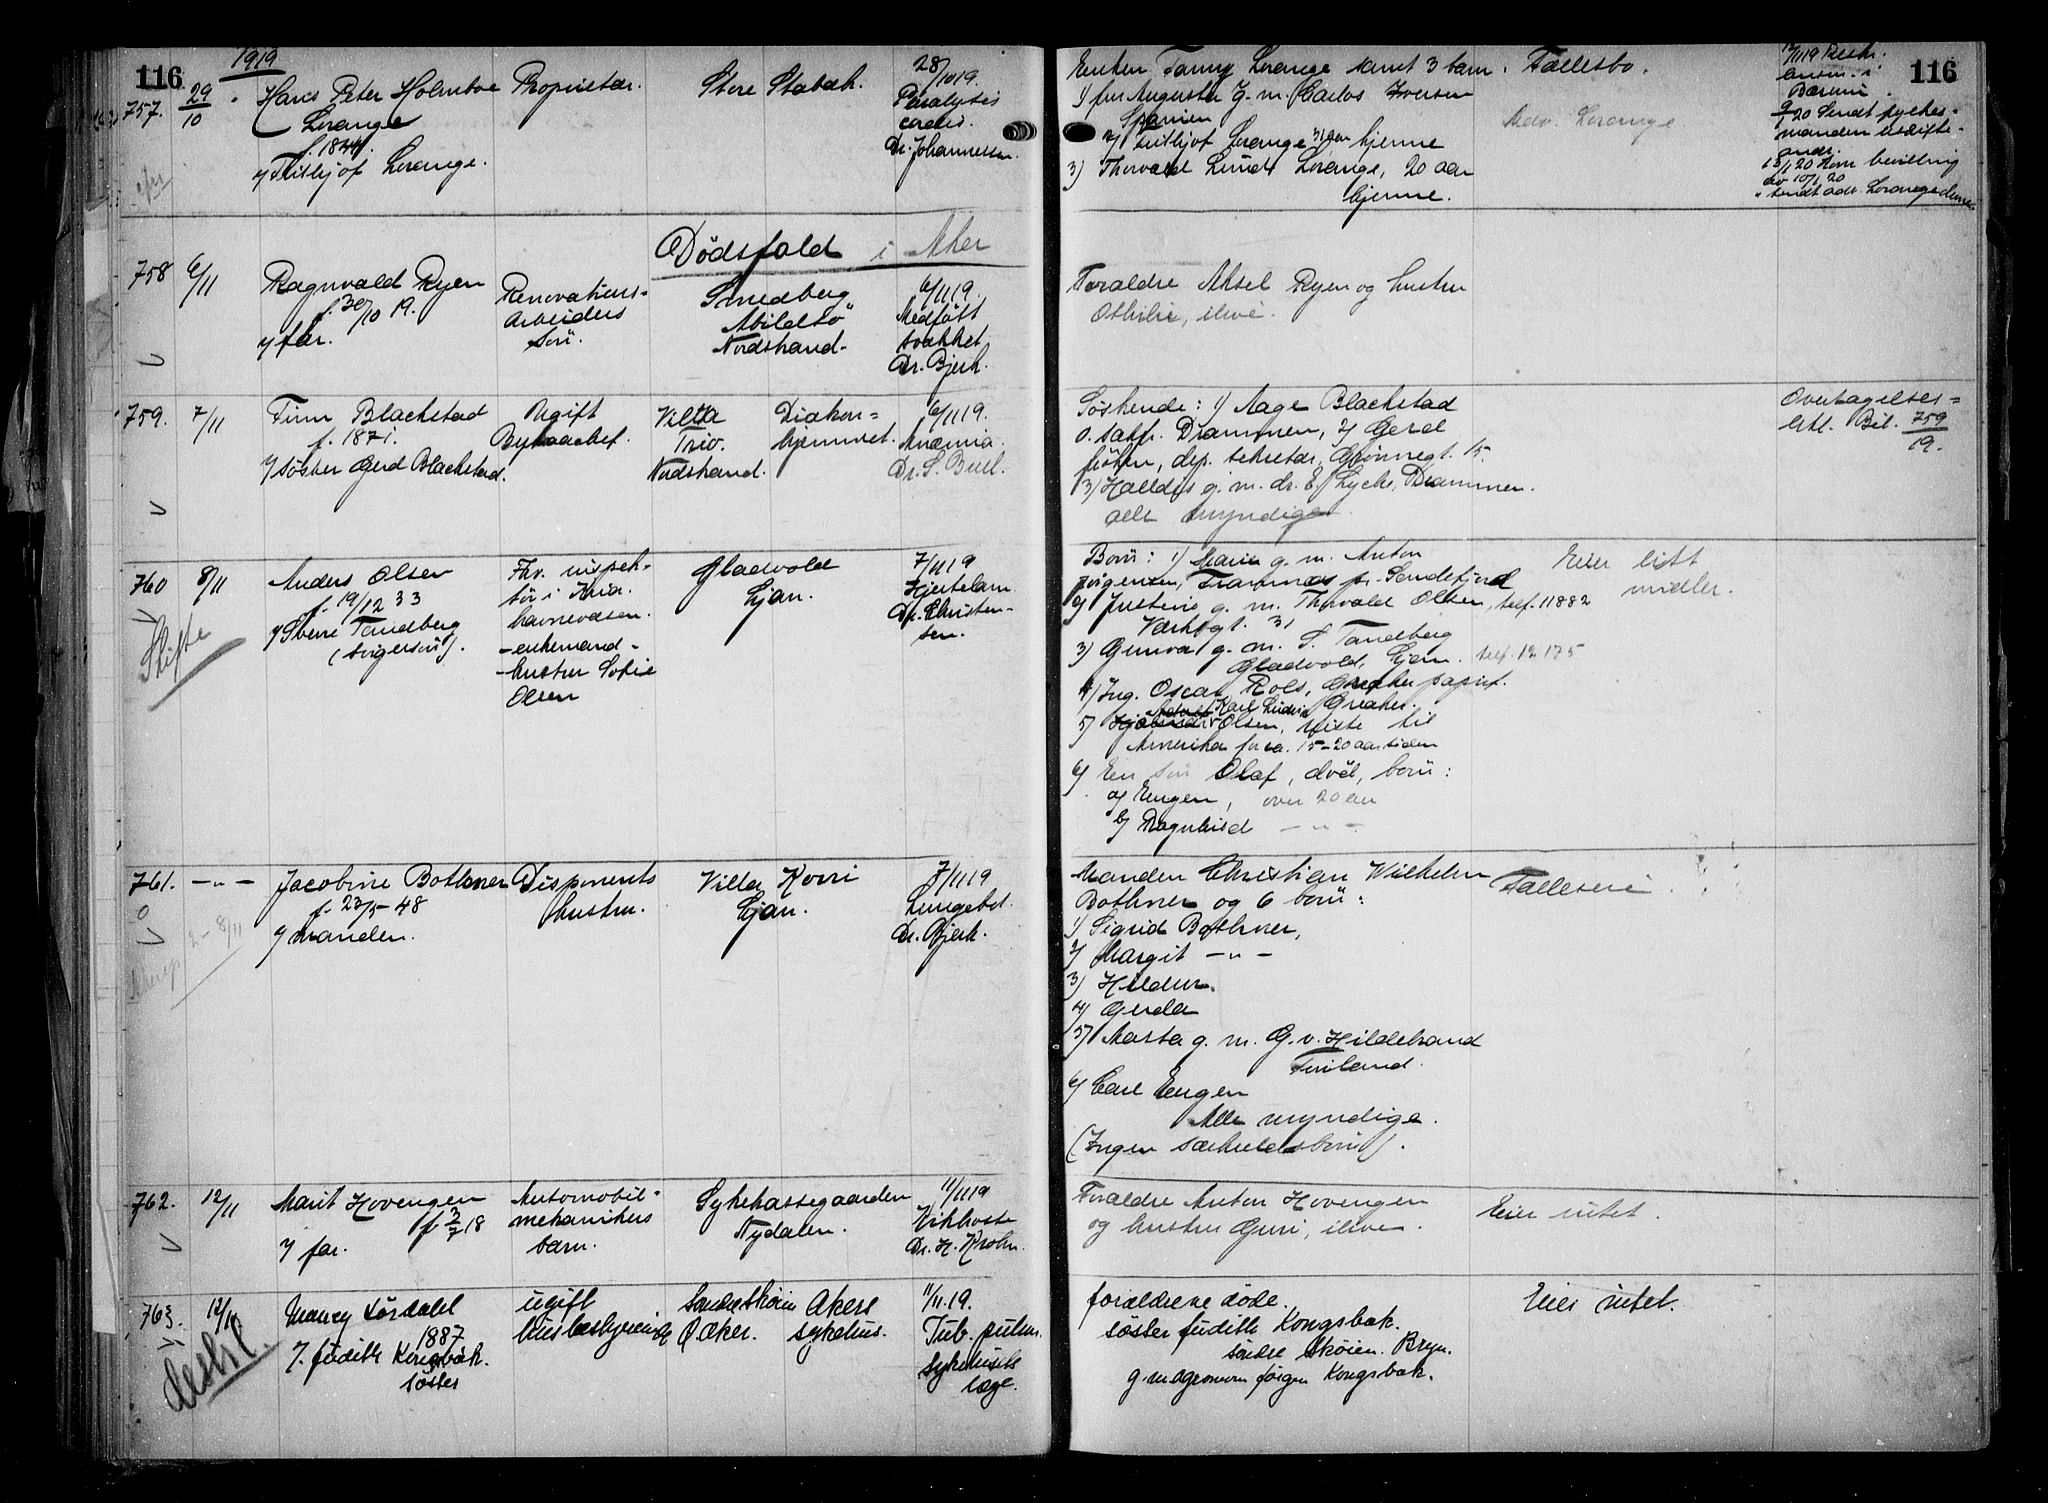 1919
116
757. 29/10 Hans Peter Holmboe Lorange
f. 1844.
v/ Fritjof Lorange.
Proprietær.
Store Stabæk.
28/10 19.
Paralysis
cordis.
Dr. Johannessen.
Dødsfald i Aker
758 6/11 Ragnvald Ryen
f. 30/10 19.
v/ far.
Renovations-
arbeiders
søn.
Smedberg
Abildsø
Nordstrand.
6/11 19.
Medfødt
svakhet
Dr. Bjerk.
759. 7/11 Finn Blackstad
f. 1871.
v/ søster Gerd Blackstad.
Ugift
Villa
Nordstrand.
Diakon-
hjemmet.
6/11 19.
Anæmia.
760 8/11 Anders Olsen
f. 19/12 33
v/ Sverre Tandberg
(svigersøn).
Skifte
Fhv. inspek-
tør i Kria.
havnevæsen.
- enkemand -
- hustru Sofie
Olsen
Gladvold
Ljan.
7/11 19
Hjertelam.
Dr. Christen-
sen.
761. -"- Jacobine Bothner
f. 23/5-48
v/ manden.
2-8/11
Disponents
hustru.
Villa
Ljan.
7/11 19
Lungebet.
Dr. Bjerk.
762. 12/11 Marit Hovengen
f. 3/7 18
v/ far.
Automobil-
mekanikers
barn.
Sykekassegaarden
Nydalen.
11/11 19
Kikhoste
Dr. H. Krohn.
763. 12/11 Nancy Tørdahl
1887
v. Judith Kongsbak.
søster
ugift
husbestyrerinde
Søndre Skøien
Ø. Aker.
Akers
sykehus.
11/11. 19.
Tub. pulm.
sykehusets
læge.
116
Enken Fanny Lorange samt 3 barn.
1) fru Augusta g. m. Carlos Iversen
Spanien
2) Fritjof Lorange 31 aar hjemme
3) Thorvald Lund Lorange, 20 aar
hjemme.
Fællesbo.
Adv. Lorange
Bærum.
Forældre Aksel Ryen og hustru
Othilie, ilive.
Søskende: 1) Aage Blackstad
o. sakf. Drammen, 2) Gerd
frøken, dep. sekretær, Grønnegt. 15.
3) Halldis g. m. dr. E. Lyche, Drammen.
alle myndige.
Overtagelses-
erkl. Bil. 759/19.
Børn: 1) Marie g. m. Anton
Jørgensen, Framnæs pr. Sandefjord
2) Justine g. m. Thorvald Olsen, telf. 11882
31
3) Gunvor g. m. S. Tandberg
Gladvold, Ljan. telf. 12175
4) Ing. Oscar Rols, Greaker papirf.
Greaker.
5) Karl Ludvig Olsen, reiste til
Amerika for ca. 15-20 aar siden
6) En søn Olaf, død, børn:
a) Eugen, over 20 aar
b) Ragnhild -"-
Eier litt
midler.
Manden Christian Wilhelm
Bothner og 6 børn:
1) Sigrid Bothner,
2) Margit -"-
3) Hildur.
4) Gerda
5) Aasta g. m. G. v. Hildebrand
Finland.
6) Carl Eugen
Alle myndige.
(Ingen særkuldsbørn).
Fælleseie.
Forældre Anton Hovengen
og hustru Guri, ilive.
Eier intet.
forældrene døde.
søster Judith Kongsbak.
søndre Skøien. Bryn.
g. m. agronom Jørgen Kongsbak.
Eier intet.